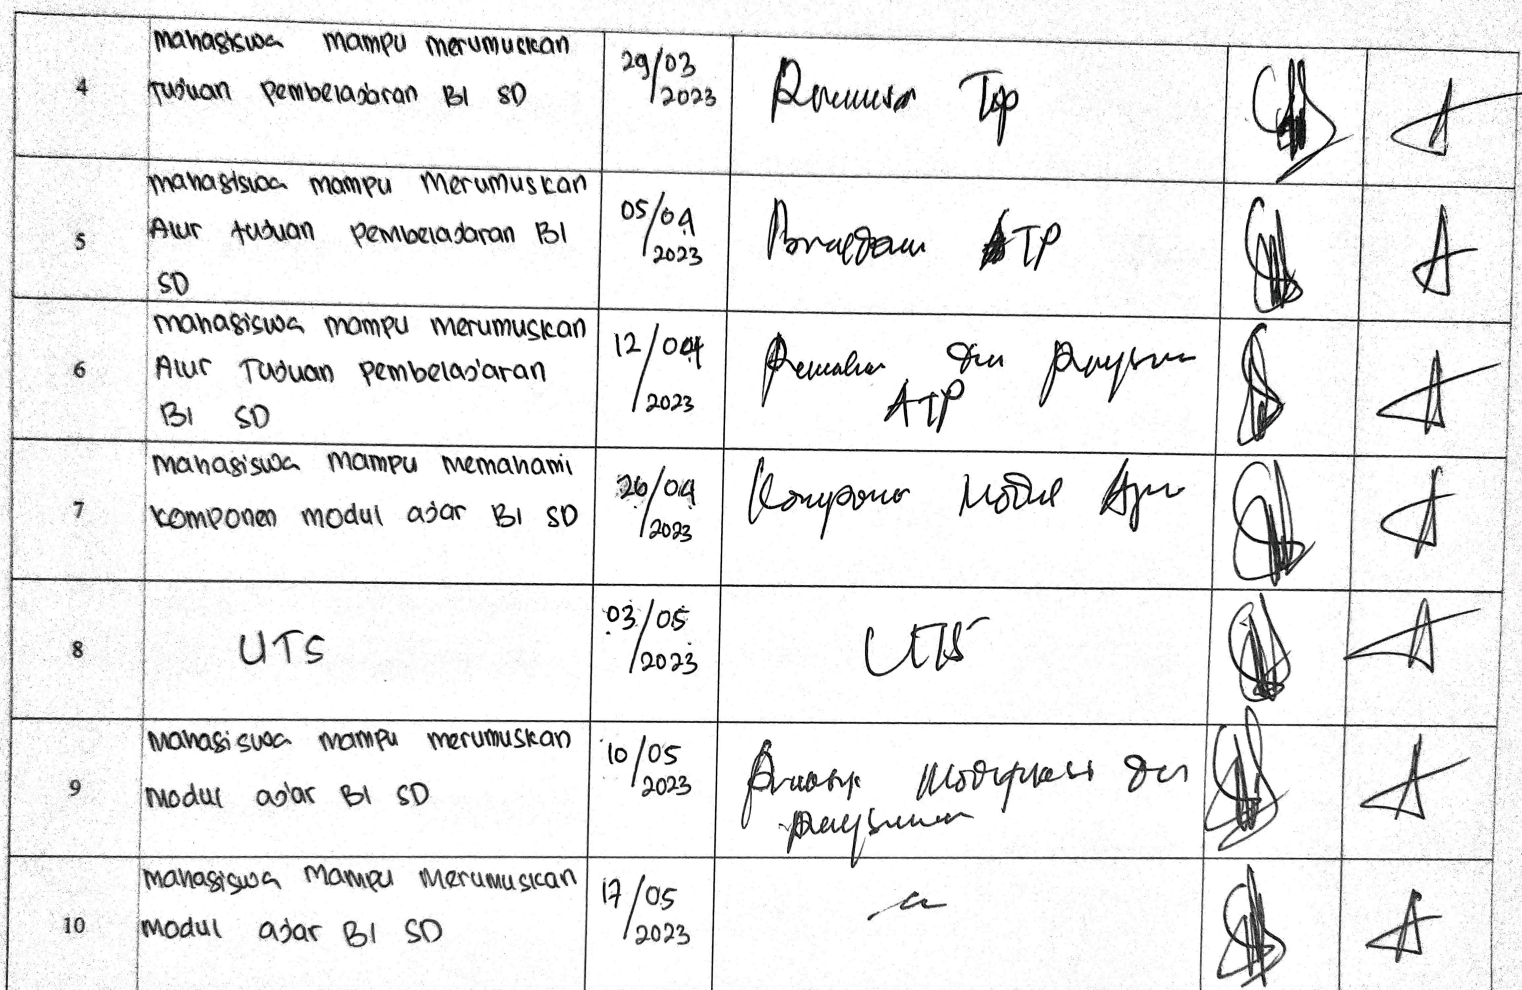 4
mahasiswa mampu merumuskan
tujuan pembelajaran BI SD
29/03
2023
Tp
5
mahasiswa mampu merumuskan
Alur tujuan pembelajaran BI
SD
05/04
2023
ATP
6
mahasiswa mampu merumuskan
Alur Tujuan pembelajaran
BI SD
12/04
2023
ATP
7
mahasiswa mampu memahami
komponen modul ajar BI SD
26/04
2023
Komponen Modul Ajar
8
UTS
03/05
2023
UTS
9
mahasiswa mampu merumuskan
modul ajar BI SD
10/05
2023
10
mahasiswa mampu merumuskan
modul ajar BI SD
17/05
2023